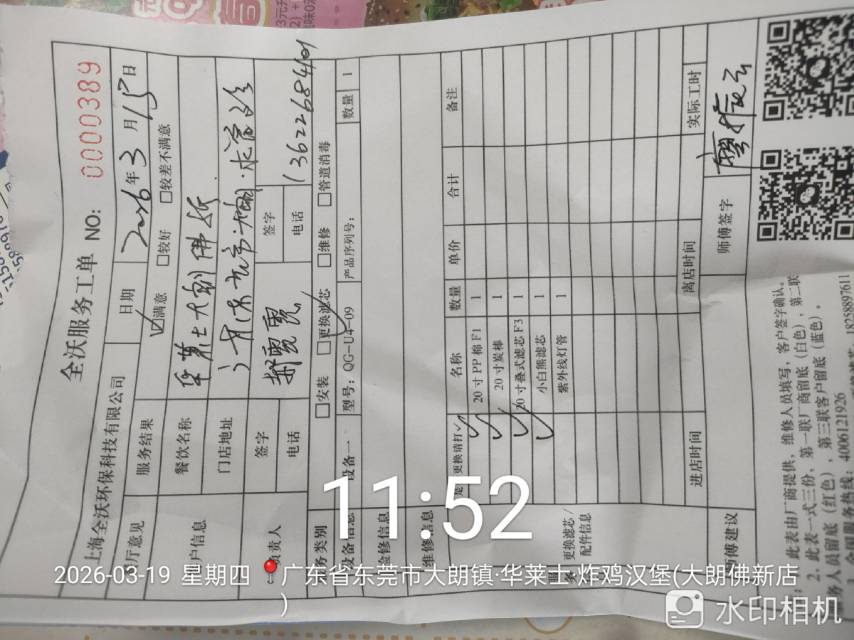 全沃服务工单 NO: 0000389
上海全沃环保科技有限公司 日期 2026年3月19日
服务结果 ☑满意 □较好 □较差不满意
餐饮名称 华莱士大朗佛新
门店地址
签字 签字
电话 电话 13622684101
□安装 □更换滤芯 □维修 □管道消毒
设备一 型号: QG-U4-09 产品序列号: 数量 1
检修信息
维修信息
更换请打✓ 名称 数量 单价 合计 备注
✓ 20寸PP棉F1 1
✓ 20寸炭棒 1
✓ 20寸叠式滤芯F3 1
✓ 小白熊滤芯 1
紫外线灯管 1
更换滤芯/
配件信息
进店时间 离店时间 实际工时
师傅签字
此表由厂商提供,维修人员填写,客户签字确认。
2、此表一式三份,第一联厂商留底(白色),第二联
务人员留底(红色),第三联客户留底(蓝色)。
4006121926 18258897611
11:52
2026-03-19 星期四 广东省东莞市大朗镇·华莱士·炸鸡汉堡(大朗佛新店
)
水印相机